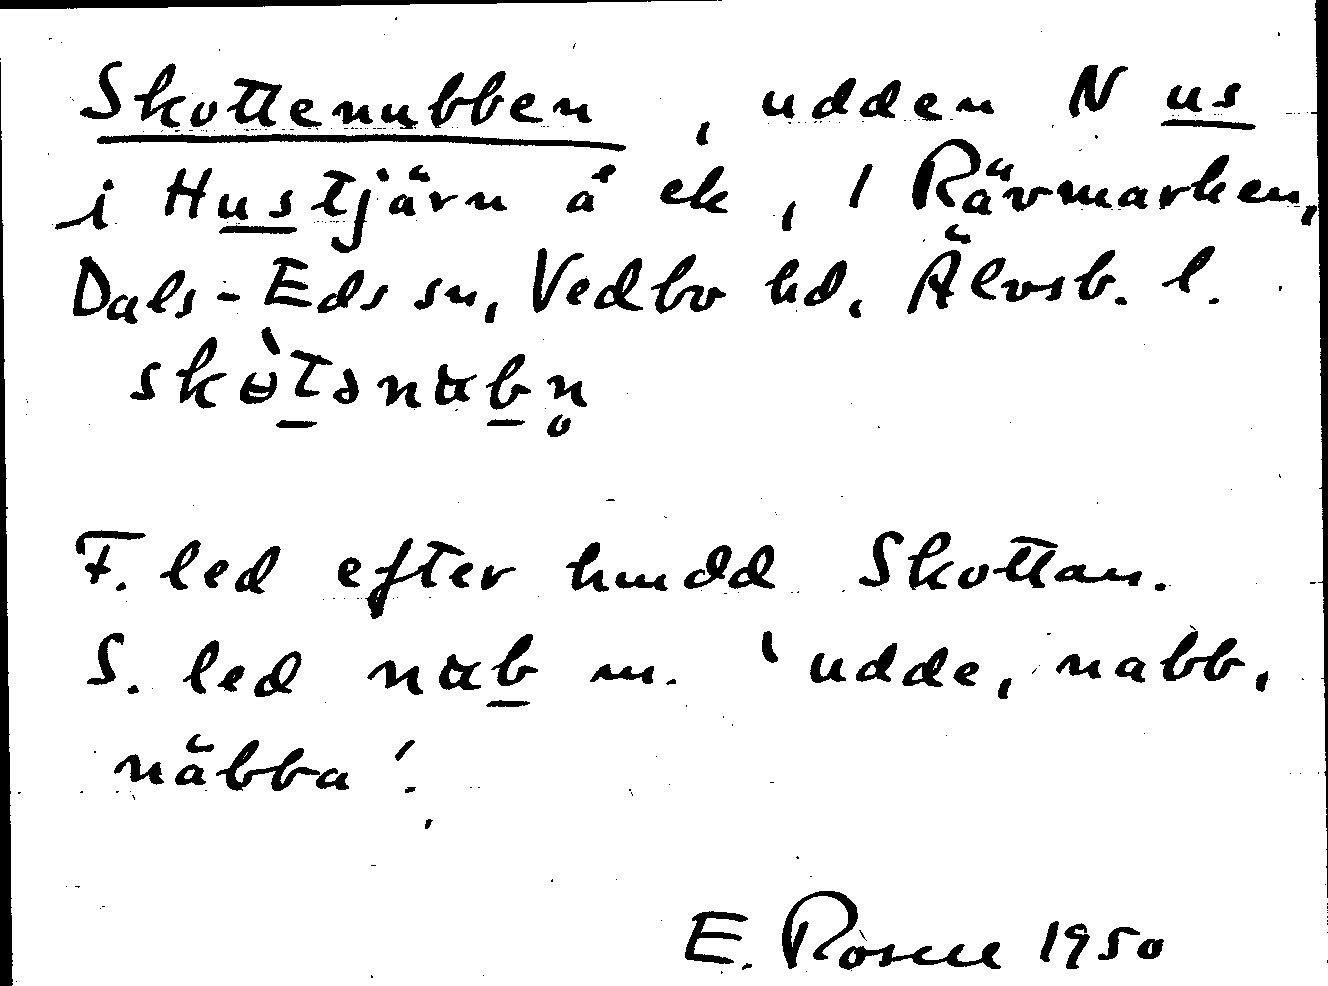 Skottenubben, udden N us
i Hustjärn å ek, 1 Rävmarken,
Dals-Eds sn, Vedbo hd, Älvsb. l.
skɵ̀t̲ənɑb̲n̥
F. led efter hmdd Skottan.
S. led nɑb̲ m. ‛udde, nabb,
näbba’.
E. Rosell 1950